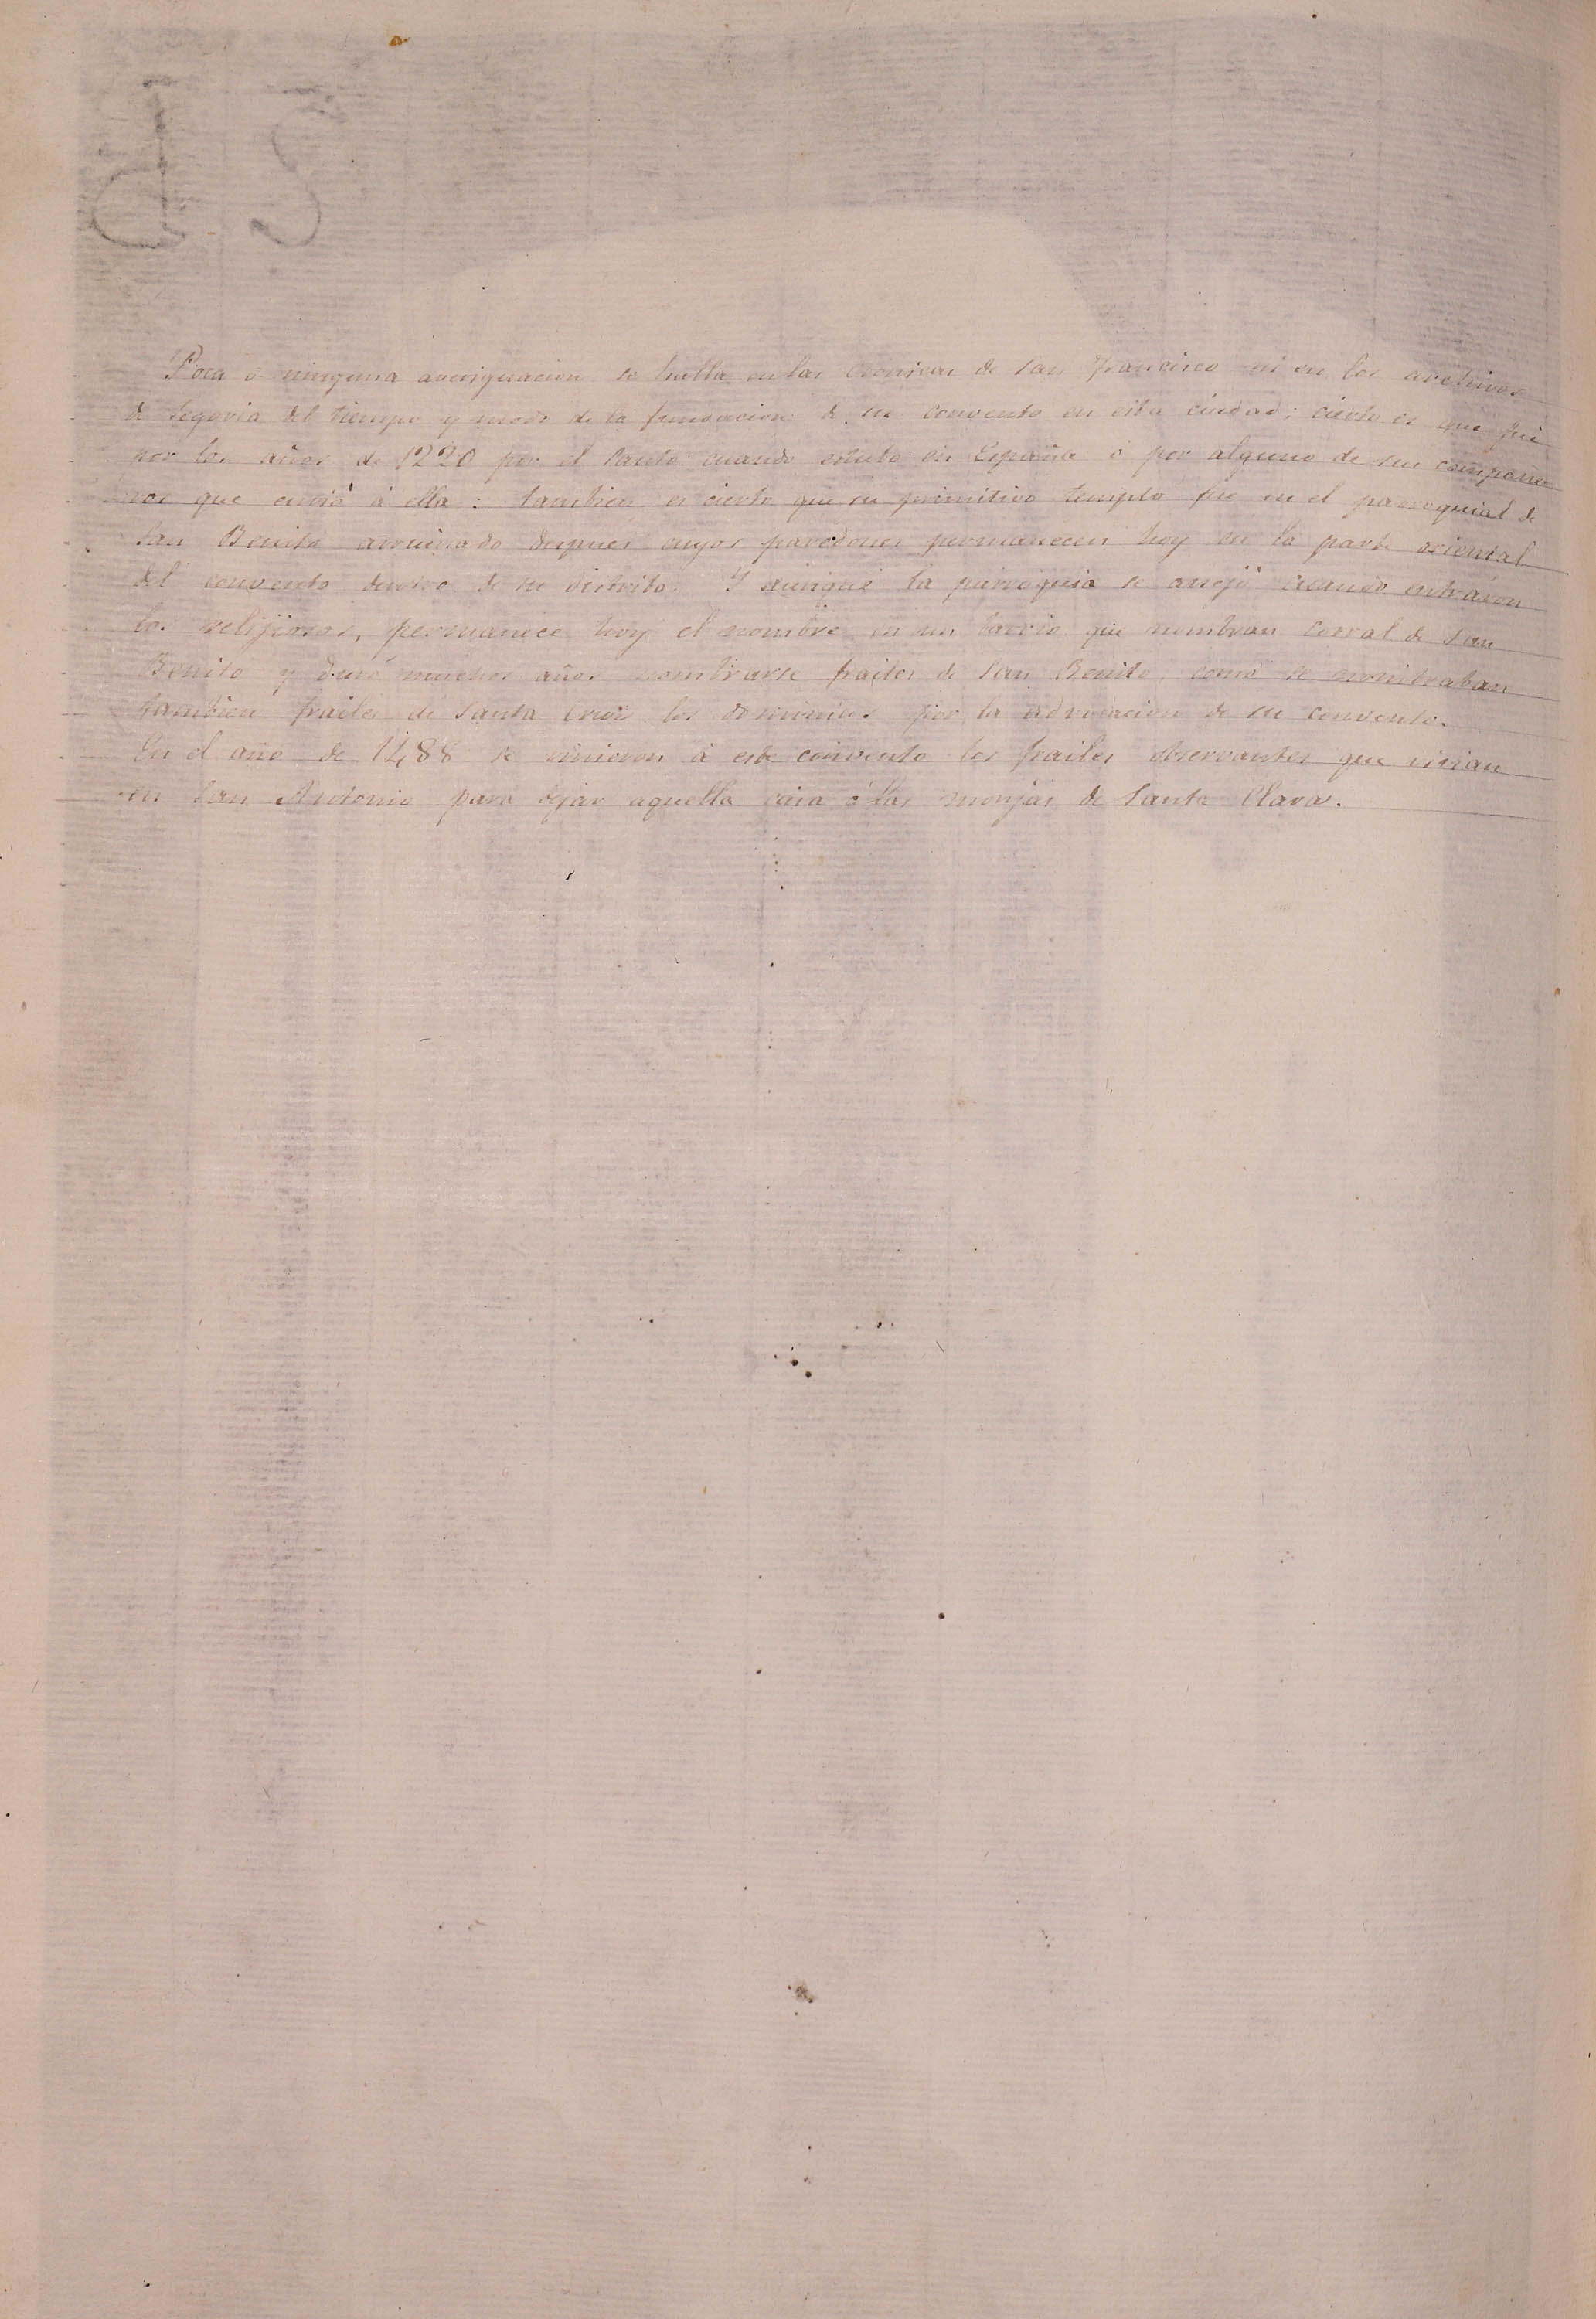 Poca ó ninguna averiguacion se halla en las crónicas de san Francisco ni en los archivos
de Segovia del tiempo y modo de la fundacion de su convento en esta ciudad; cierto es que fué
por los años de 1220 por el santo cuando estubo en España ó por alguno de sus compañe
ros que envió á ella: tambien es cierto que su primitivo templo fue en el parroquial de
San Benito arruinado despues cuyos paredones permanecen hoy en la parte oriental
del convento dentro de su distrito. Y aunque la parroquia se anejó cuando entráron
los relijiosos, permanece hoy el nombre en un barrio que nombran corral de san
Benito y duró muchos años nombrarse frailes de san Benito, como se nombraban
tambien frailes de Santa Cruz los dominicos por la advocacion de su convento.
En el año de 1488 se vinieron á este convento los frailes observantes que vivian
en San Antonio para dejar aquella casa á las monjas de Santa Clara.